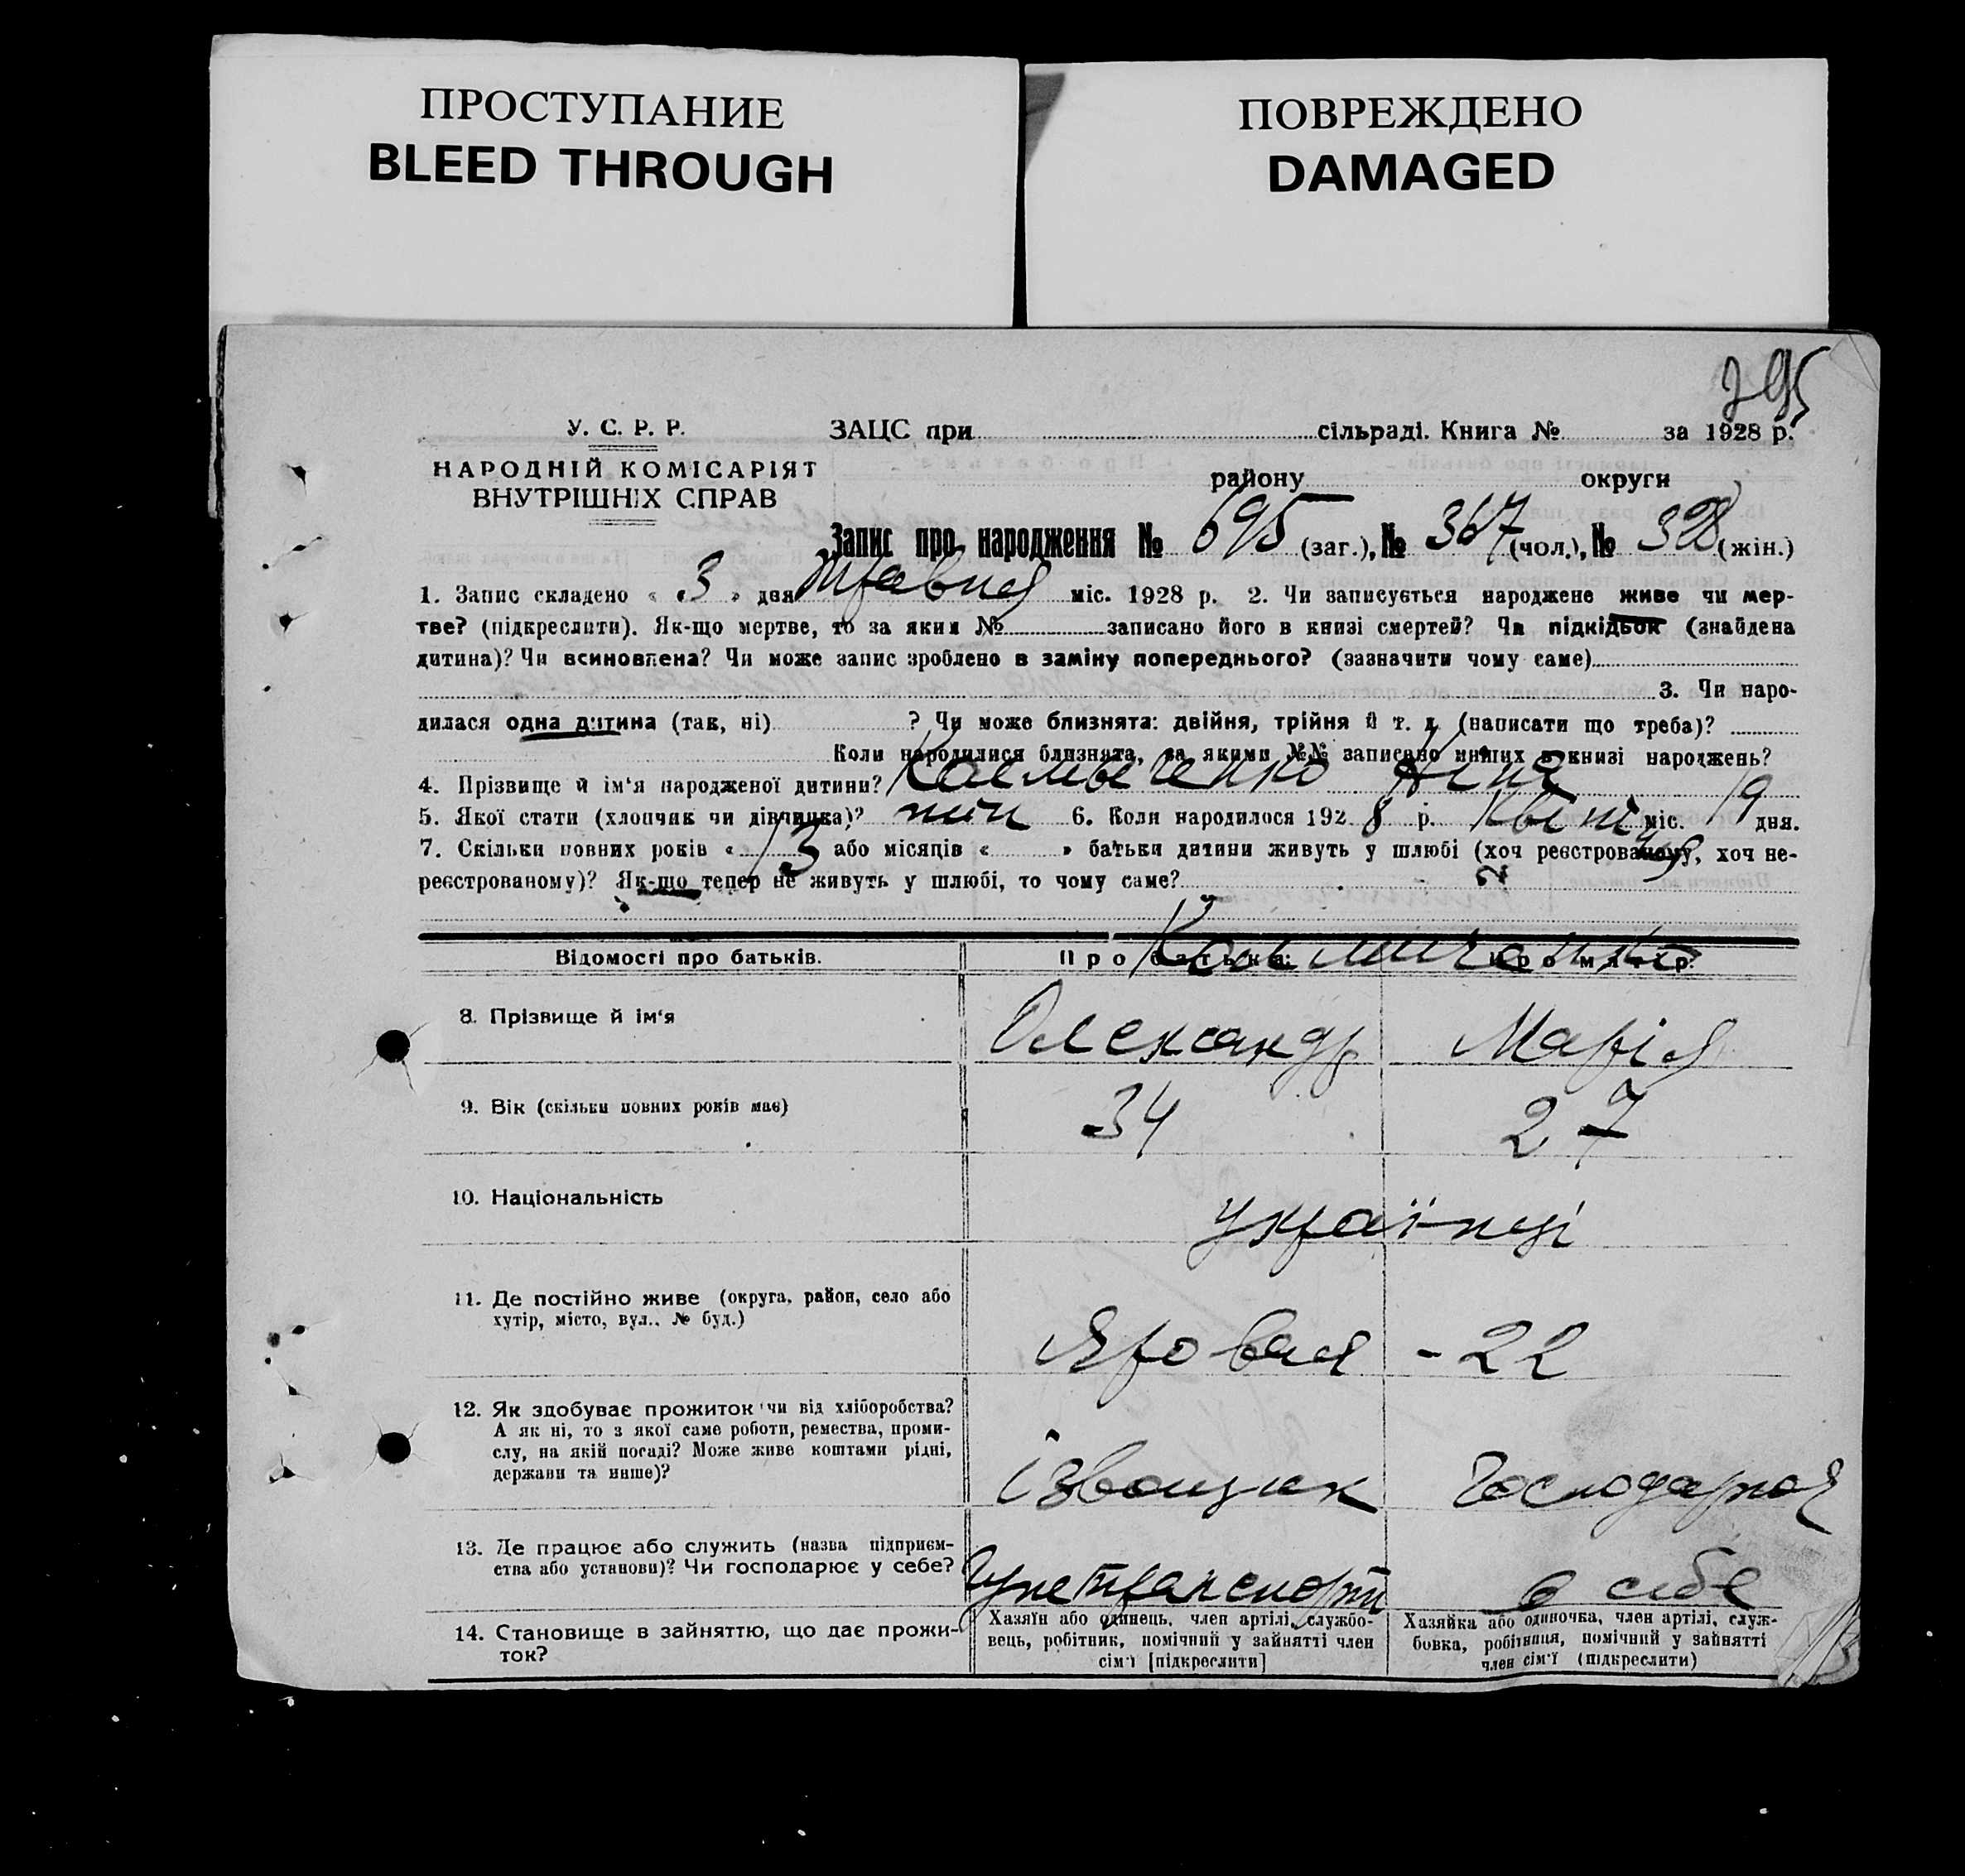 ПРОСТУПАНИЕ
BLEED THROUGH
ПОВРЕЖДЕНО
DAMAGED
295
У. С. Р. Р.
НАРОДНІЙ КОМІСАРІЯТ
ВНУТРІШНІХ СПРАВ
ЗАЦС при сільраді. Книга № за 1928 р.
району округи
Запис про народження № 695 (заг.), № 367 (чол.), № 328 (жін.)
1. Запис складено « 3 » дня травня міс. 1928 р. 2. Чи записується народжене живе чи мер-
тве? (підкреслити). Як-що мертве, то за яким № записано його в книзі смертей? Чи підкідьок (знайдена
дитина)? Чи всиновлена? Чи може запис зроблено в заміну попереднього? (зазначити чому саме)
3. Чи наро-
дилася одна дитина (так, ні) ? Чи може близнята: двійня, трійня й т. д. (написати що треба)?
Коли народилися близнята, за якими №№ записано инших в книзі народжень?
4. Прізвище й ім'я народженої дитини?
5. Якої стати (хлопчик чи дівчинка)? жін 6. Коли народилося 1928 р. Квітня міс. 19 дня.
7. Скільки повних років « 13 або місяців « » батьки дитини живуть у шлюбі (хоч реєстрованому, хоч не-
реєстрованому)? Як-що тепер не живуть у шлюбі, то чому саме?
Відомості про батьків. Про батька: Про матір:
8. Прізвище й ім'я Олександр Марія
9. Вік (скільки повних років має) 34 27
10. Національність українці
11. Де постійно живе (округа, район, село або
хутір, місто, вул.. № буд.) Яровая - 22
12. Як здобуває прожиток чи від хліборобства?
А як ні, то з якої саме роботи, ремества, проми-
слу, на якій посаді? Може живе коштами рідні,
держави та инше)? ізвощик Господарюя
13. Де працює або служить (назва підприєм-
ства або установи)? Чи господарює у себе? в себе
14. Становище в зайняттю, що дає прожи-
ток?
Хазяїн або одинець, член артілі, службо-
вець, робітник, помічний у зайнятті член
сім'ї [підкреслити]
Хазяйка або одиночка, член артілі, служ-
бовка, робітниця, помічний у зайнятті
член сім'ї (підкреслити)